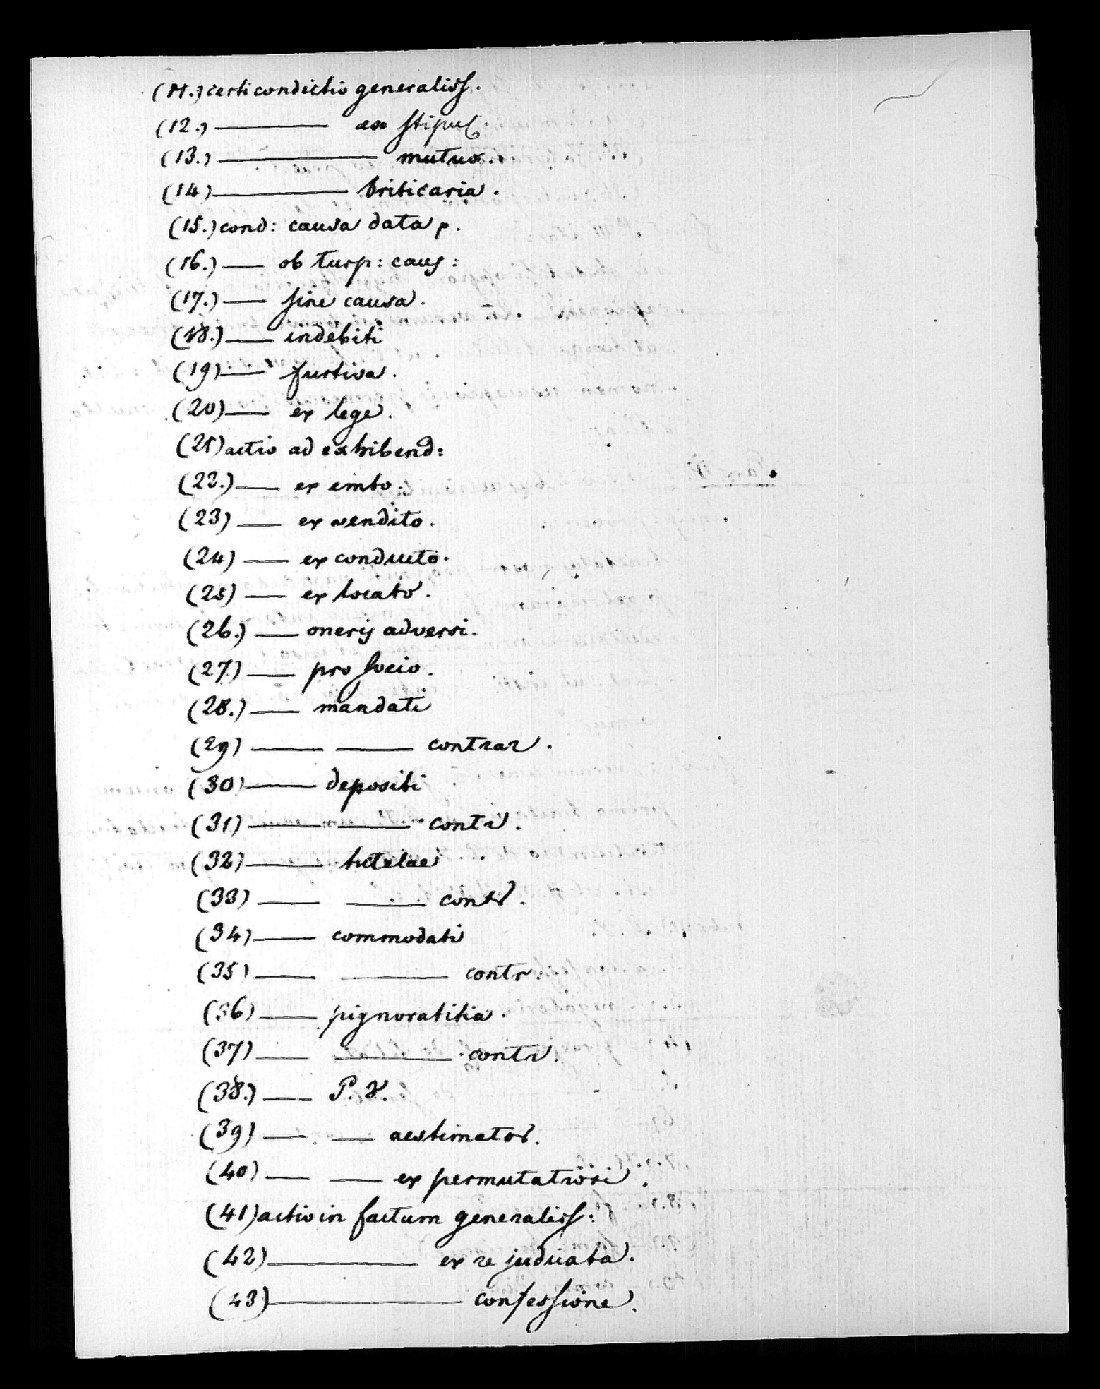 (11.) certi condictio generaliss.
(12.) ——— ex stipul.
(13.) ——— mutuo.
(14) ——— triticaria.
(15.) cond: causa data p.
(16.) — ob turp: caus:
(17.) — sine causa.
(18.) — indebiti
(19) — furtiva.
(20) — ex lege.
(21) actio ad exhibend:
(22.) — ex emto.
(23) — ex vendito.
(24) — ex conducto.
(25) — ex locato.
(26.) — oneris adversi.
(27.) — pro socio.
(28.) — mandati
(29) — — contrar.
(30) — depositi
(31) — — contr.
(32) — tutelae
(33) — — contr.
(34) — commodati
(35) — — contr.
(36) — pignoratitia.
(37) — — contr.
(38.) — P. V.
(39) — — aestimator.
(40) — — ex permutationi.
(41) actio in factum generaliss:
(42) ——— ex re judicata.
(43) ——— confessione.